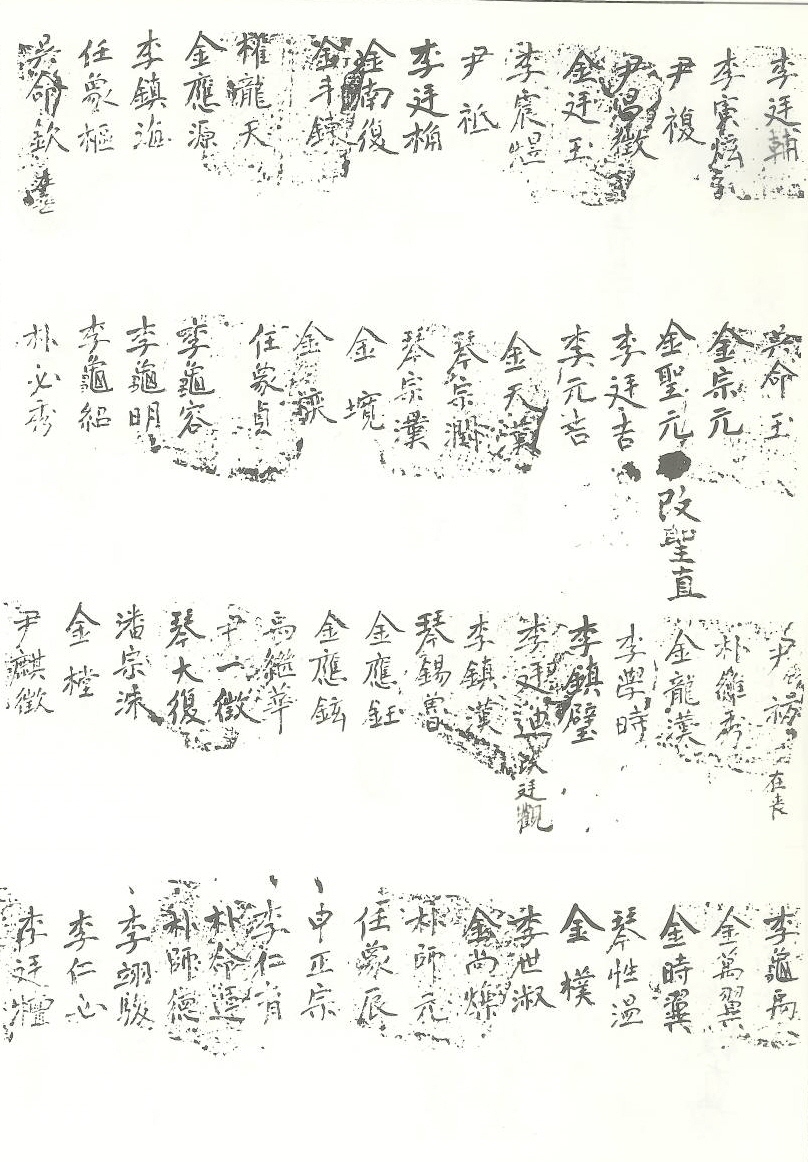 李廷輔
李寅炫
尹 複
尹昌徵
金廷玉
李震熅
尹 祗
李廷桷
金南復
金斗鍊
權龍天
金應源
李鎮海
任象樞
吳命欽
吳命玉
金宗元
金聖元 改聖直
李廷吉
李元吉
金天漢
琴宗潤
琴宗漢
金 寬
金
任象貞
李龜容
李龜明
李龜紹
朴必秀
尹 在喪
朴 秀
金龍漢
李學時
李鎮璧
李廷迪 改廷觀
李鎮漢
琴錫曾
金應鈺
金應鉉
禹繼華
尹一徵
琴大復
潘宗洙
金樘
尹麒徵
李龜禹
金萬翼
金時翼
琴性溫
金 樸
李世淑
金尚爍
朴師元
任象辰
申正宗
李仁有
朴命
朴師德
李翊駿
李仁必
李廷